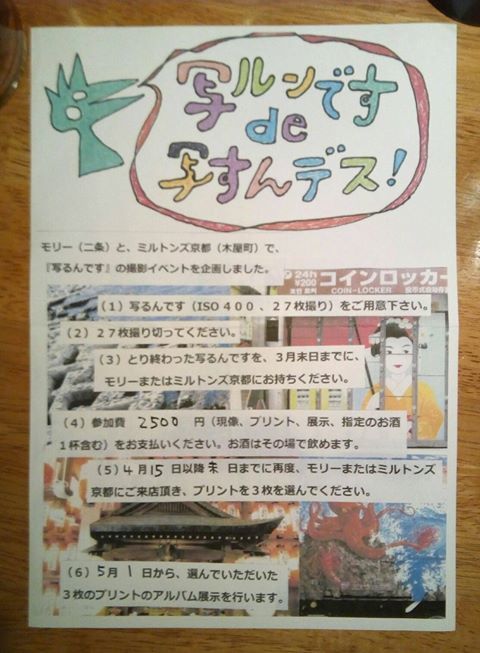 写ルンです
de
写すんデス!
モリー（二条）と、ミルトンズ京都（木屋町）で、
『写るんです』の撮影イベントを企画しました。
24h
¥200
コインロッカー
COIN-LOCKER
（１）写るんです（ISO４００、２７枚撮り）をご用意下さい。
（２）２７枚撮り切ってください。
（３）とり終わった写るんですを、３月末日までに、
モリーまたはミルトンズ京都にお持ちください。
（４）参加費 2500 円（現像、プリント、展示、指定のお酒
１杯含む）をお支払いください。お酒はその場で飲めます。
（５）４月15日以降末日までに再度、モリーまたはミルトンズ
京都にご来店頂き、プリントを３枚を選んでください。
（６）5月1日から、選んでいただいた
３枚のプリントのアルバム展示を行います。